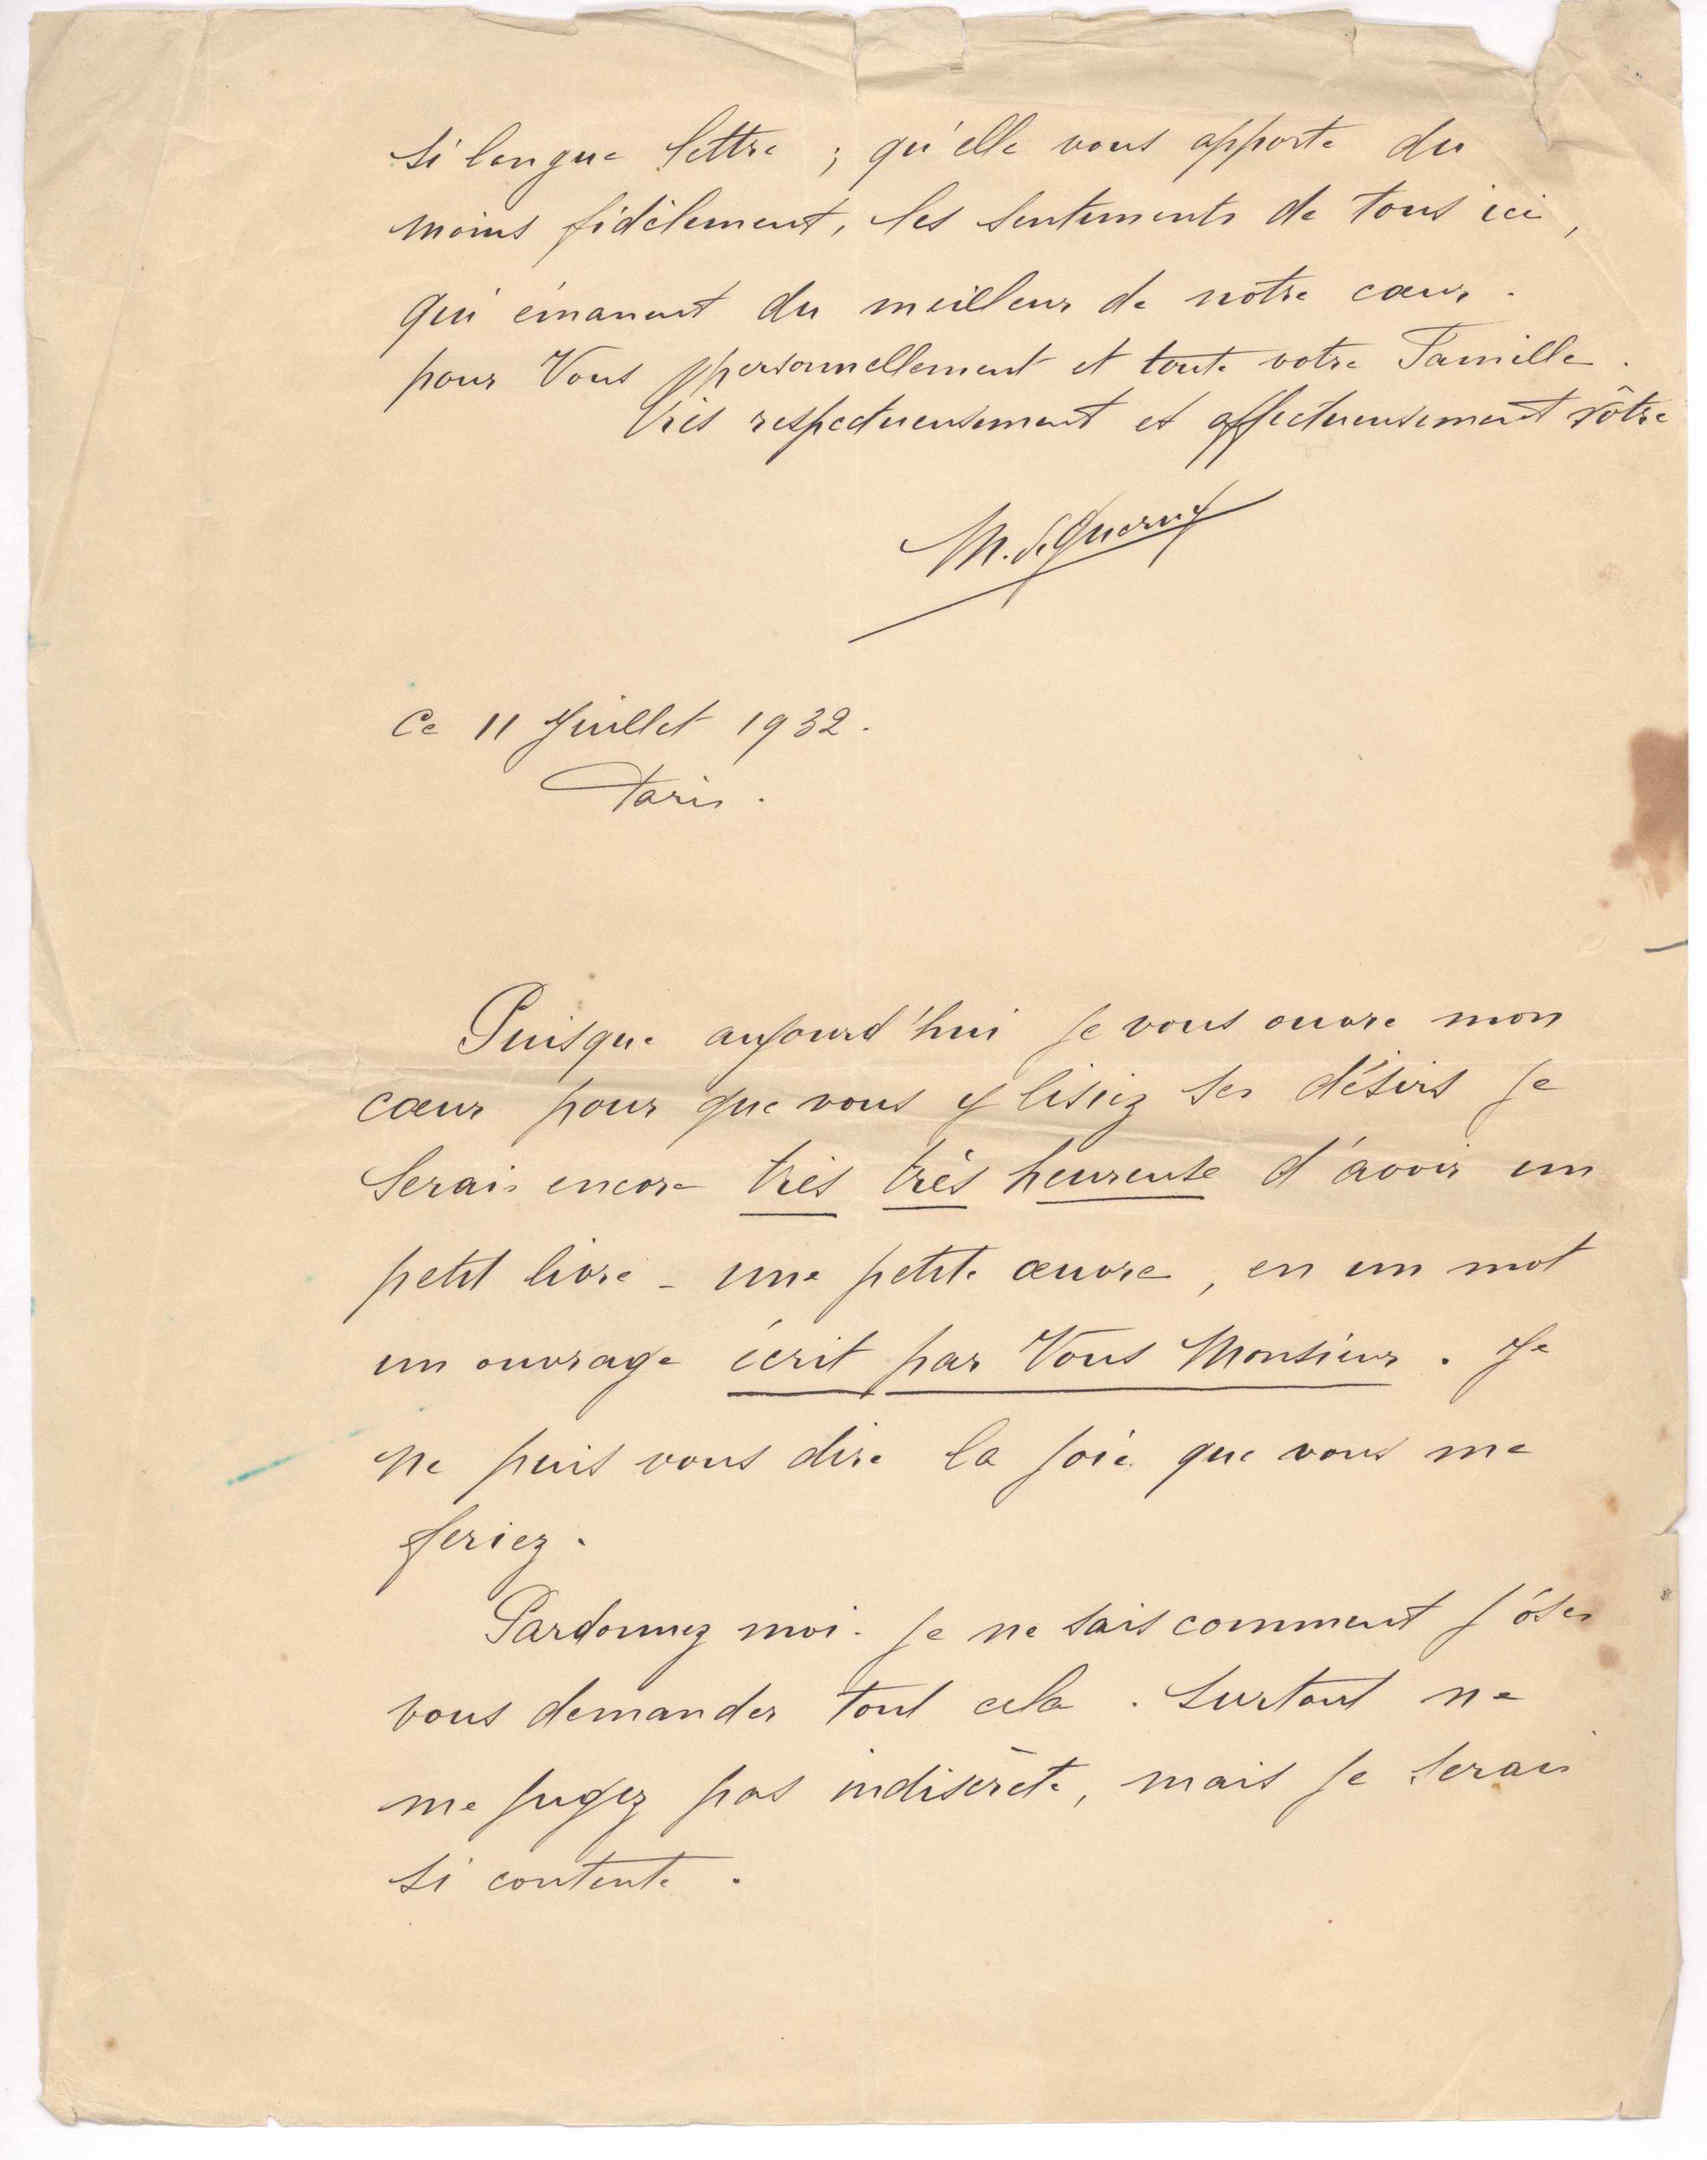 si longue lettre ; qu'elle vous apporte du
moins fidèlement, les sentiments de tous ici,
qui émanent du meilleur de notre cœur.
pour Vous personnellement et toute votre Famille.
très respectueusement et affectueusement vôtre
M. de
Ce 11 Juillet 1932.
Paris.
Puisque aujourd'hui je vous ouvre mon
cœur pour que vous y lisiez ses désirs je
serais encore très très heureuse d'avoir un
petit livre - une petite œuvre, en un mot
un ouvrage écrit par Vous Monsieur. Je
ne puis vous dire la joie que vous me
feriez.
Pardonnez moi. je ne sais comment j'ose
vous demander tout cela. Surtout ne
me jugez pas indiscrète, mais je serais
si contente.